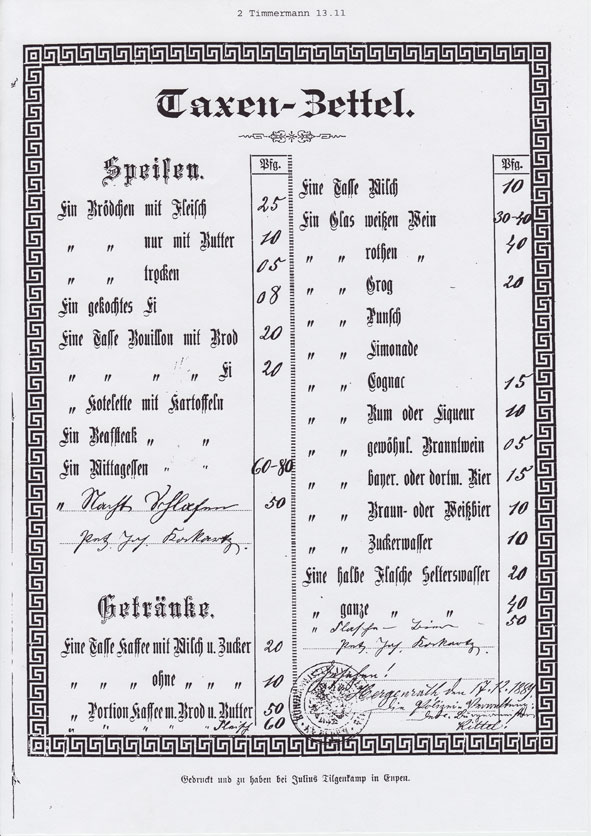 2 Timmermann 13.11
Taxen-Zettel.
Speisen.
Pfg.
Ein Brödchen mit Fleisch 25
„ „ nur mit Butter 10
„ „ trocken 05
Ein gekochtes Ei 08
Eine Tasse Bouillon mit Brod 20
„ „ „ „ Ei 20
„ Kotelette mit Kartoffeln
Ein Beafsteak „ „
Ein Mittagessen „ „ 60-80
„ Nacht Schlafen 50
Jos. Korkartz.
Getränke.
Eine Tasse Kaffee mit Milch u. Zucker 20
„ „ „ ohne „ „ „ 10
„ Portion Kaffee m. Brod u. Butter 50
„ „ „ „ „ Fleisch 60
Pfg.
Eine Tasse Milch 10
Ein Glas weißen Wein 30-40
„ „ rothen „ 40
„ „ Grog 20
„ „ Punsch
„ „ Limonade
„ „ Cognac 15
„ „ Rum oder Liqueur 10
„ „ gewöhnl. Branntwein 05
„ „ bayer. oder dortm. Bier 15
„ „ Braun- oder Weißbier 10
„ „ Zuckerwasser 10
Eine halbe Flasche Selterswasser 20
„ ganze „ „ 40
„ Flasche Bier 50
Jos. Korkartz.
Gesehen!
Hergenrath den 17.12.1889
Die Polizei-Verwaltung:
Kittel.
Gedruckt und zu haben bei Julius Tilgenkamp in Eupen.